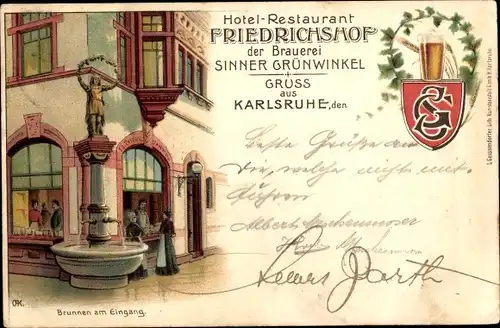 Hotel-Restaurant
FRIEDRICHSHOF
der Brauerei
SINNER GRÜNWINKEL
GRUSS
aus
KARLSRUHE, den
SG
Beste Grüße an
die, welche nicht mit-
fuhren
Albert
Louis Barth
AK
Brunnen am Eingang.